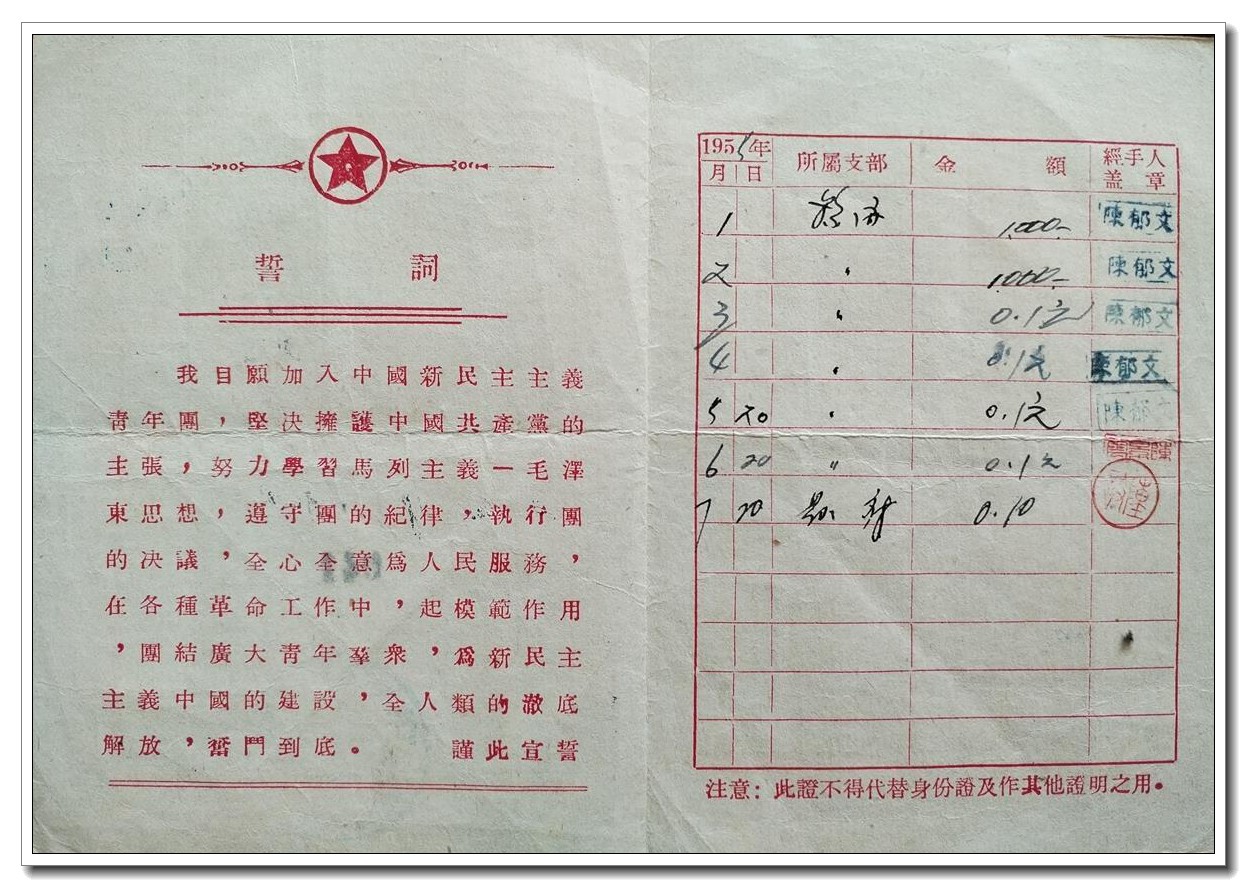 誓 詞
我自願加入中國新民主主義
青年團，堅決擁護中國共產黨的
主張，努力學習馬列主義—毛澤
東思想，遵守團的紀律，執行團
的決議，全心全意為人民服務，
在各種革命工作中，起模範作用
，團結廣大青年羣衆，為新民主
主義中國的建設，全人類的澈底
解放，奮鬥到底。 謹此宣誓
1955年 所屬支部 金 額 經手人
月 日 盖 章
1 1000- 陳郁文
2 〃 1000- 陳郁文
3 〃 0.1元 陳郁文
4 〃 0.1元 陳郁文
5 20 〃 0.1元 陳郁文
6 20 〃 0.1元
7 20 0.10
注意：此證不得代替身份證及作其他證明之用。